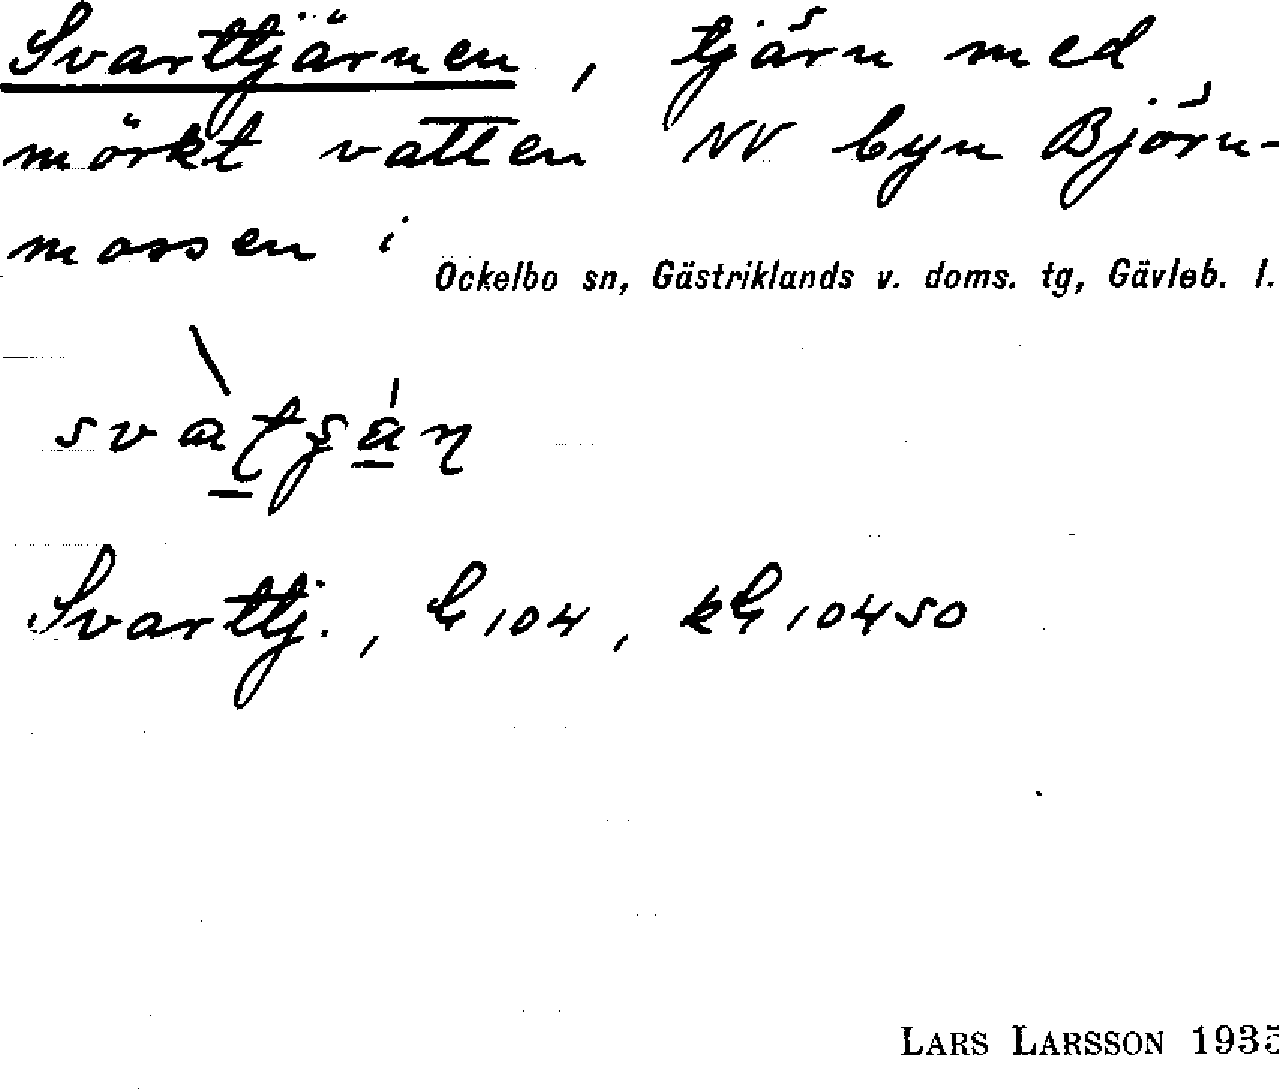 Svarttjärnen, tjärn med
mörkt vatten NV byn Björn-
mossen i
Ockelbo sn, Gästriklands v. doms. tg, Gävleb. l.
Svarttj.,
LARS LARSSON 1935